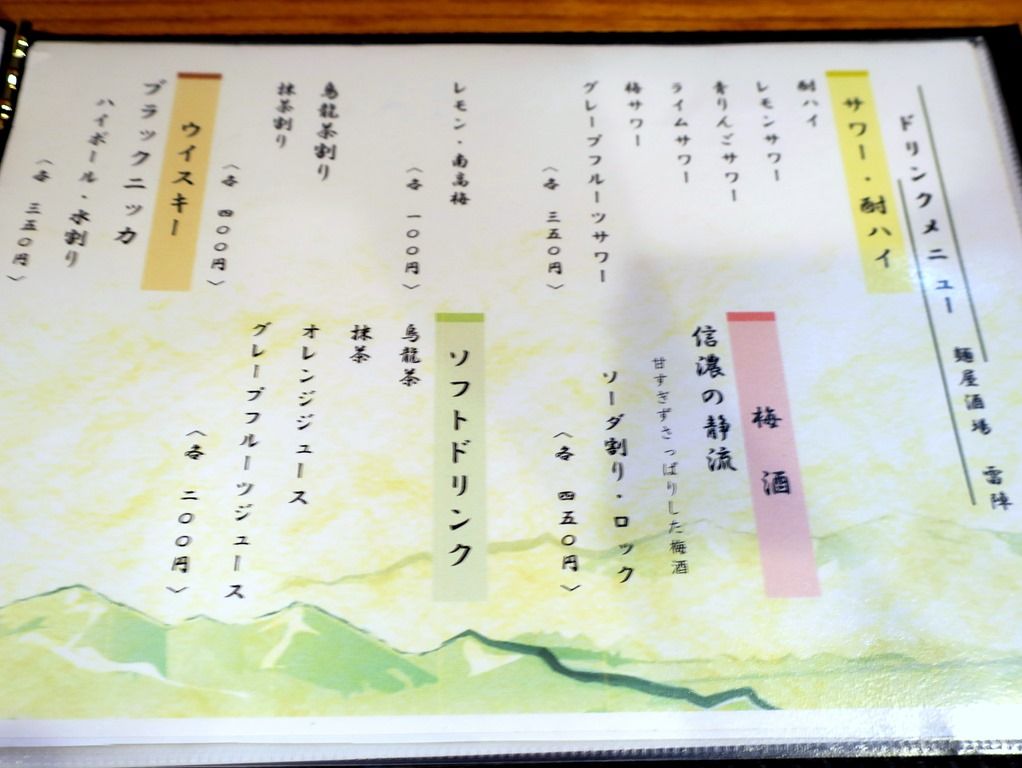 ドリンクメニュー
麺屋酒場 雷陣
サワー・酎ハイ
酎ハイ
レモンサワー
青りんごサワー
ライムサワー
梅サワー
グレープフルーツサワー
〈各 三五〇円〉
レモン・南高梅
〈各 一〇〇円〉
烏龍茶割り
抹茶割り
〈各 四〇〇円〉
ウイスキー
ブラックニッカ
ハイボール・水割り
〈各 三五〇円〉
梅酒
信濃の静流
甘すぎずさっぱりした梅酒
ソーダ割り・ロック
〈各 四五〇円〉
ソフトドリンク
烏龍茶
抹茶
オレンジジュース
グレープフルーツジュース
〈各 二〇〇円〉